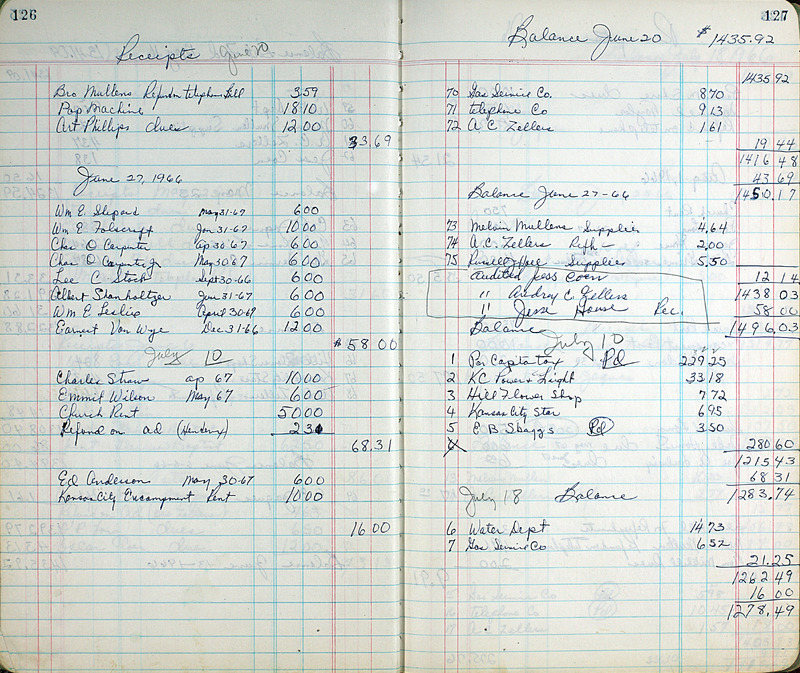 126
Receipts June 20
Bro Mullens Refund on telephone Bill 3 59
Pop Machine 18 10
Art Phillips dues 12 00
33.69
June 27, 1966
Wm E. Shepard May 31-67 6 00
Wm E. Folscroft Jan 31-67 10 00
Chas O Carpenter ap 30 67 6 00
Chas O Carpenter Jr May 30 67 6 00
Lee C. Stock Sept 30-66 6 00
Albert Stanholtzer June 31-67 6 00
Wm E Leslie April 30-69 6 00
Earnest Van Wye Dec 31-66 12 00
$58 00
July 10
Charles Straw ap 67 10 00
Emmit Wilson May 67 6 00
Church Rent 50 00
Refond on ad (Hendenx) 2 31
68.31
Ed Anderson May 30-67 6 00
Kansas City Encampment Rent 10 00
16 00
127
Balance June 20 $1435.92
1435 92
70 Gas Service Co. 8 70
71 telephone Co 9 13
72 A. C. Zellers 1 61
19 44
1416 48
43 69
Balance June 27-66 1450.17
73 Melvin Mullens Supplies 4.64
74 A. C. Zellers 2,00
75 Supplies 5.50
Audited Jess Coen 12 14
" Audrey C Zellers 1438 03
" Jesse House Rec. 58 00
Balance 1496,03
July 10
1 Per Capta tax Pd 229 25
2 KC Power & Light 33 18
3 Hill Flower Shop 7 72
4 Kansas City Star 6 95
5 E. B. Skaggs Pd 3 50
6 280 60
1215 43
68 31
July 18 Balance 1283.74
6 Water Dept 14 73
7 Gas Service Co 6 52
21.25
1262 49
16 00
1278.49